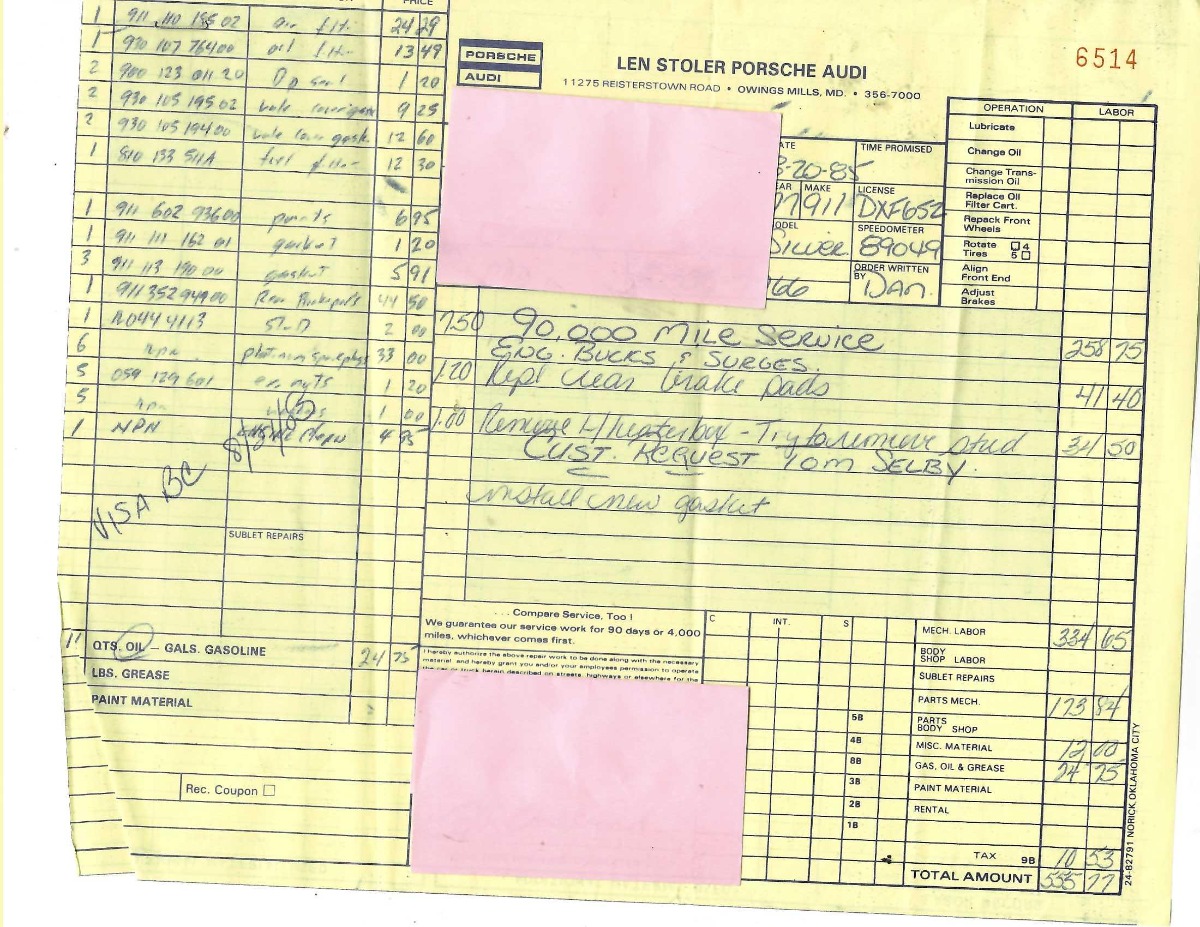 PRICE
1 911 110 185 02 air filt- 24 29
1 930 107 764 00 oil filt- 13 49
2 900 123 011 20 Op seal 1 20
2 930 105 195 02 9 25
2 930 105 194 00 12 60
1 810 133 511A fuel filt- 12 30
1 911 602 936 00 points 6 95
1 911 111 162 01 gasket 1 20
3 911 113 190 00 gasket 5 91
1 911 352 949 00 Rear 44 50
1 2 00
6 npn platinum spark plugs 33 00
5 059 129 601 ex nuts 1 20
5 1 00
1 NPN ENGINE 4 95
8/21/85
VISA BC
SUBLET REPAIRS
11 QTS. OIL – GALS. GASOLINE 24 75
LBS. GREASE
PAINT MATERIAL
Rec. Coupon
PORSCHE
AUDI
LEN STOLER PORSCHE AUDI
11275 REISTERSTOWN ROAD • OWINGS MILLS, MD. • 356-7000
6514
ATE
-20-85
TIME PROMISED
EAR MAKE
911
LICENSE
DXF652
ODEL
Silver
SPEEDOMETER
89049
66
ORDER WRITTEN BY
DAN
OPERATION LABOR
Lubricate
Change Oil
Change Trans-
mission Oil
Replace Oil
Filter Cart.
Repack Front
Wheels
Rotate 4
Tires 5
Align
Front End
Adjust
Brakes
7.50 90,000 MILE SERVICE 258 75
ENG. BUCKS & SURGES.
1.20 Repl rear brake pads 41 40
1.00 Remove H/heaterbox - Try to remove stud 34 50
CUST. REQUEST TOM SELBY.
install new gasket
. . . Compare Service, Too !
We guarantee our service work for 90 days or 4,000
miles, whichever comes first.
I hereby authorize the above repair work to be done along with the necessary
material, and hereby grant you and/or your employees permission to operate
the car or truck herein described on streets, highways or elsewhere for the
C INT. S
5B
4B
8B
3B
2B
1B
MECH. LABOR 334 65
BODY
SHOP LABOR
SUBLET REPAIRS
PARTS MECH. 173 84
PARTS
BODY SHOP
MISC. MATERIAL 12 00
GAS, OIL & GREASE 24 75
PAINT MATERIAL
RENTAL
TAX 9B 10 53
TOTAL AMOUNT 555 77
24-82791 NORICK OKLAHOMA CITY